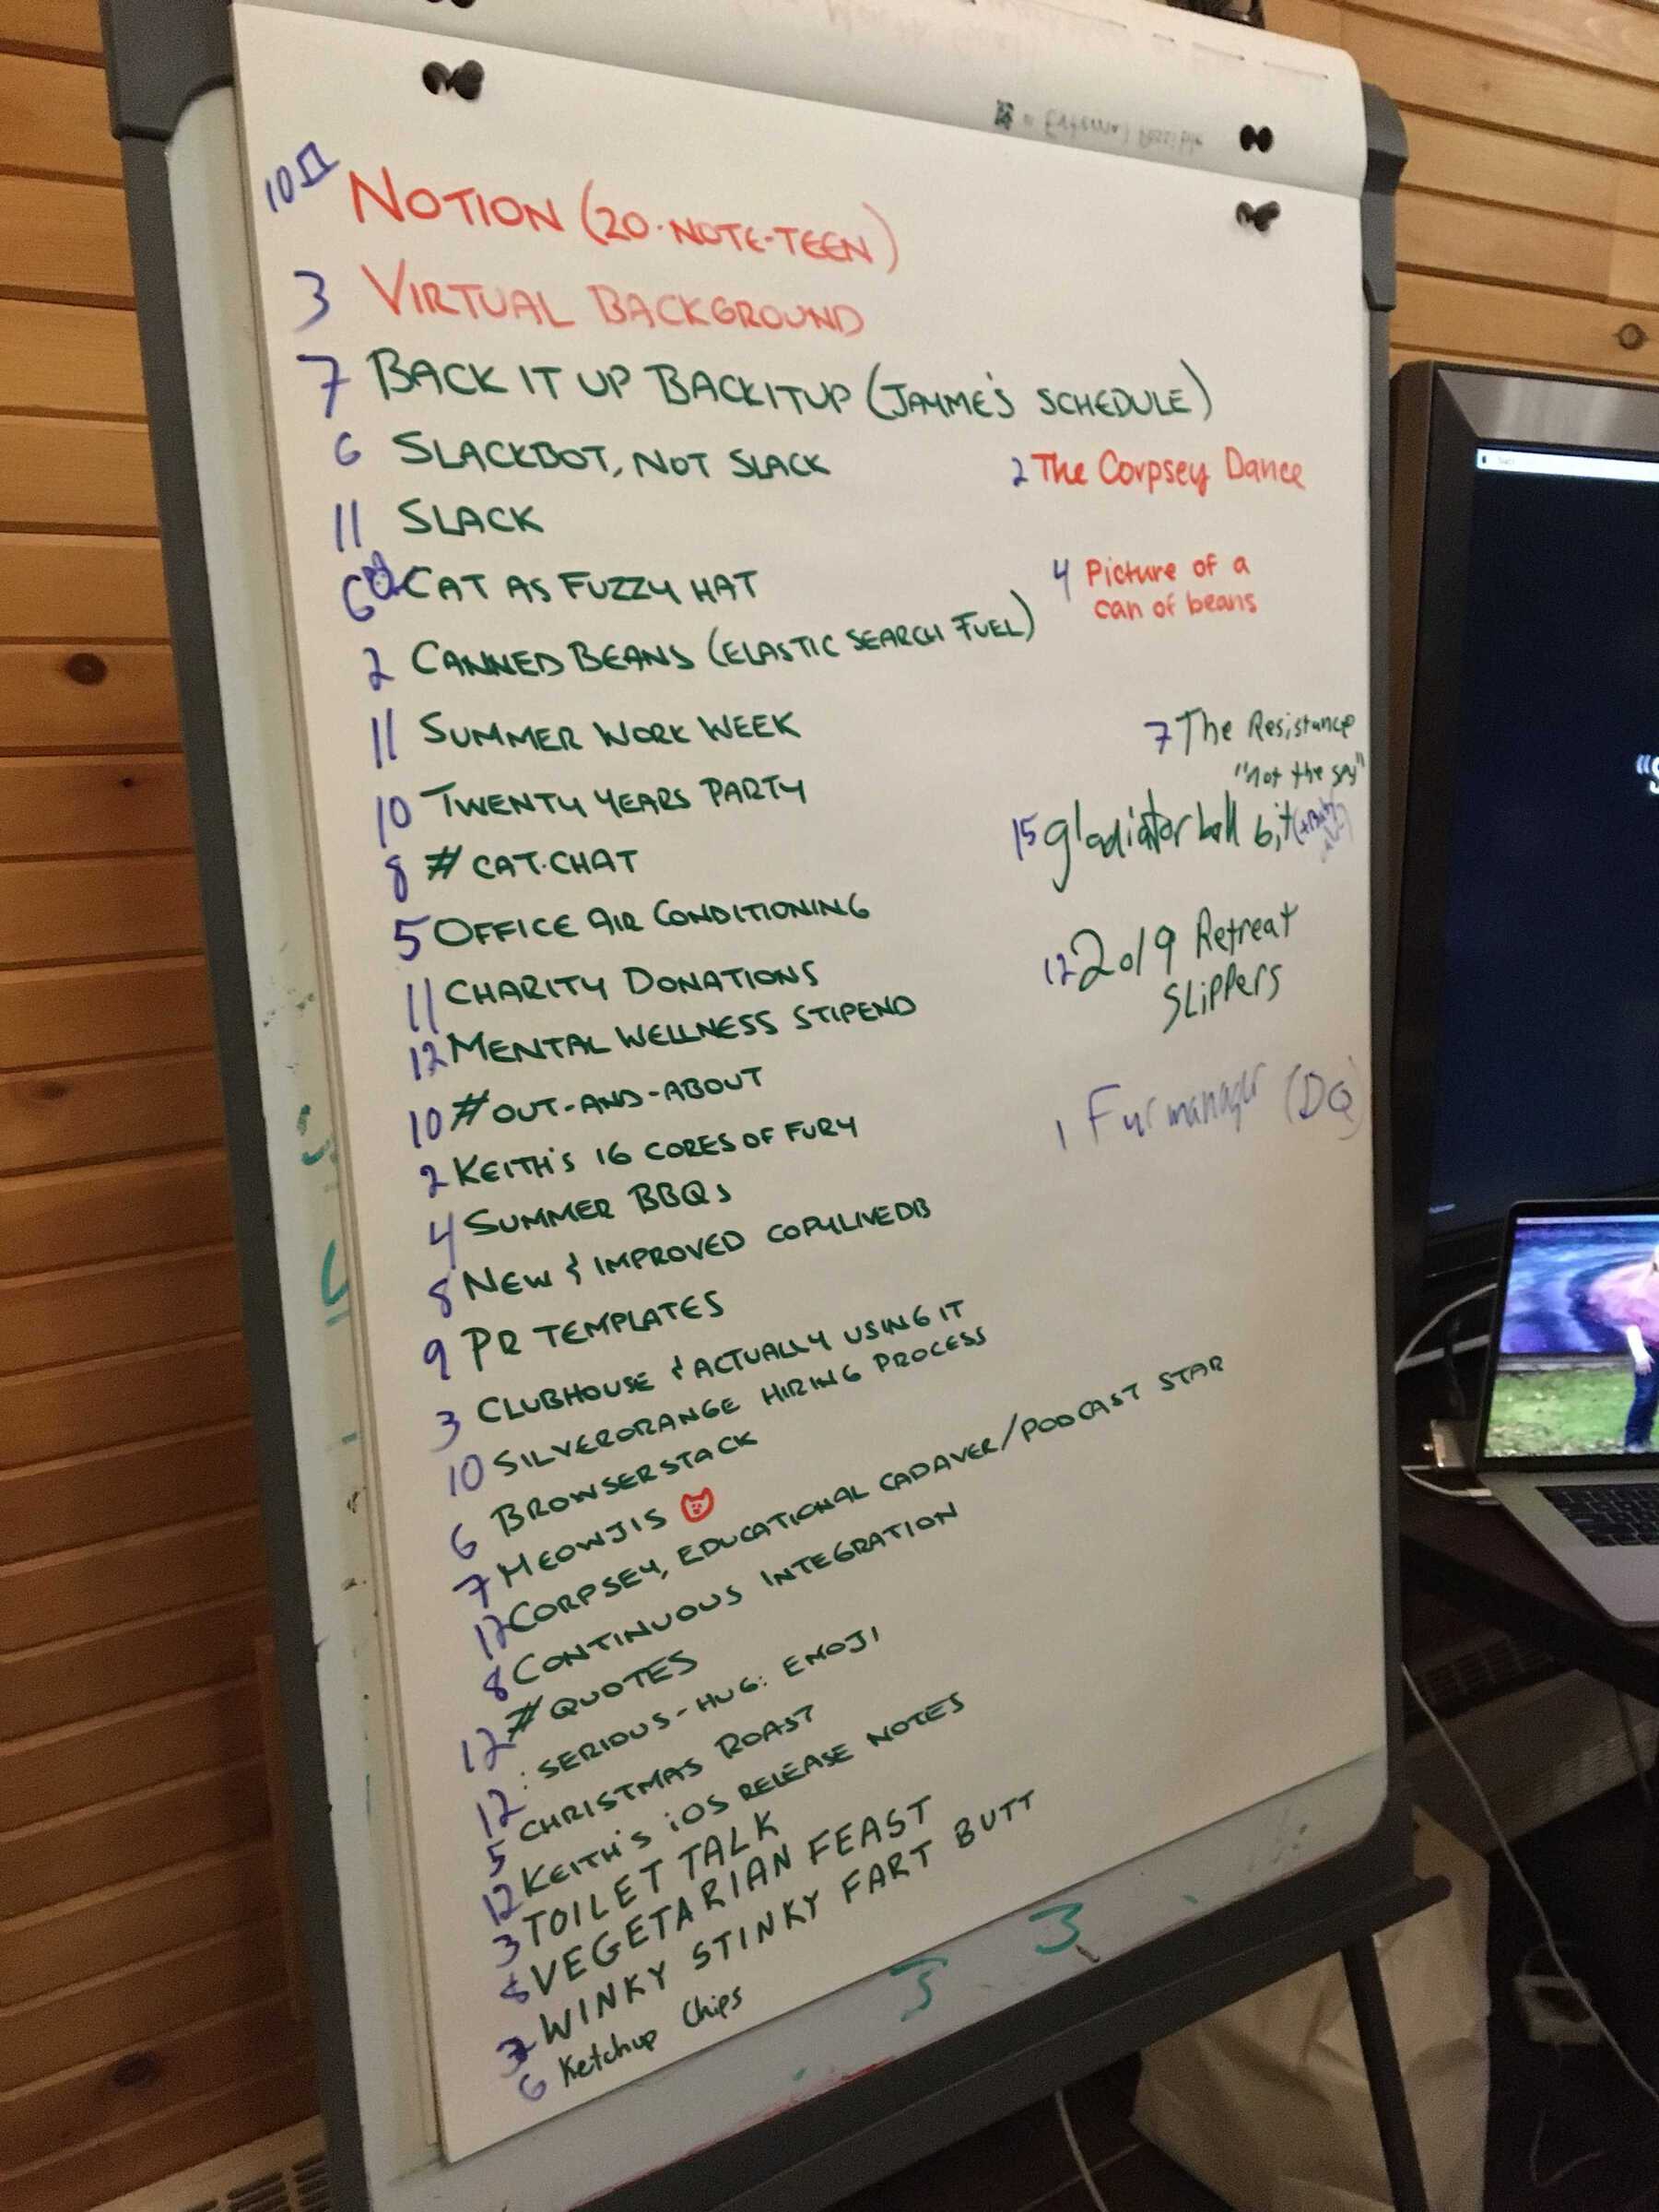 10 NOTION (20-NOTE-TEEN)
3 VIRTUAL BACKGROUND
7 BACK IT UP BACKITUP (JAYME'S SCHEDULE)
6 SLACKBOT, NOT SLACK
11 SLACK
6 CAT AS FUZZY HAT
2 CANNED BEANS (ELASTIC SEARCH FUEL)
11 SUMMER WORK WEEK
10 TWENTY YEARS PARTY
8 # CAT-CHAT
5 OFFICE AIR CONDITIONING
11 CHARITY DONATIONS
12 MENTAL WELLNESS STIPEND
10 #OUT-AND-ABOUT
2 KEITH'S 16 CORES OF FURY
4 SUMMER BBQs
8 NEW & IMPROVED COPYLIVEDB
9 PR TEMPLATES
3 CLUBHOUSE & ACTUALLY USING IT
10 SILVERORANGE HIRING PROCESS
6 BROWSERSTACK
7 MEOWJIS
12 CORPSEY, EDUCATIONAL CADAVER/PODCAST STAR
8 CONTINUOUS INTEGRATION
12 #QUOTES
12 :SERIOUS-HUG: EMOJI
5 CHRISTMAS ROAST
12 KEITH'S iOS RELEASE NOTES
3 TOILET TALK
8 VEGETARIAN FEAST
WINKY STINKY FART BUTT
6 Ketchup Chips
2 The Corpsey Dance
4 Picture of a
can of beans
7 The Resistance
"not the spy"
15 gladiator ball bit
12 2019 Retreat
Slippers
1 Furmanager (DQ)
3 3